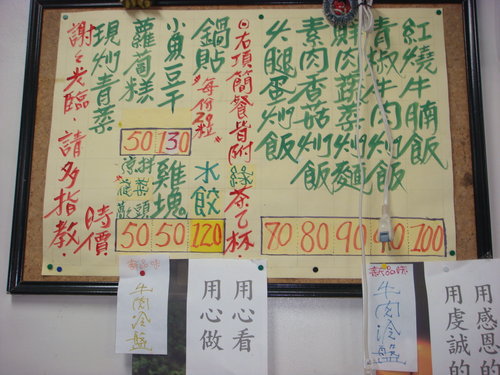 紅燒牛腩飯
青椒牛肉炒飯
鮮肉蔬菜炒麵
素肉香菇炒飯
火腿蛋炒飯
100
90
90
80
70
◎右項簡餐皆附綠茶乙杯
鍋貼
"每份20粒"
水餃
120
小魚豆干
130
雞塊
50
蘿蔔糕
50
50
現炒青菜
時價
謝謝光臨·請多指教·
用感恩的
用虔誠的
新品味
牛肉冷盤
用心看
用心做
新品味
牛肉冷盤